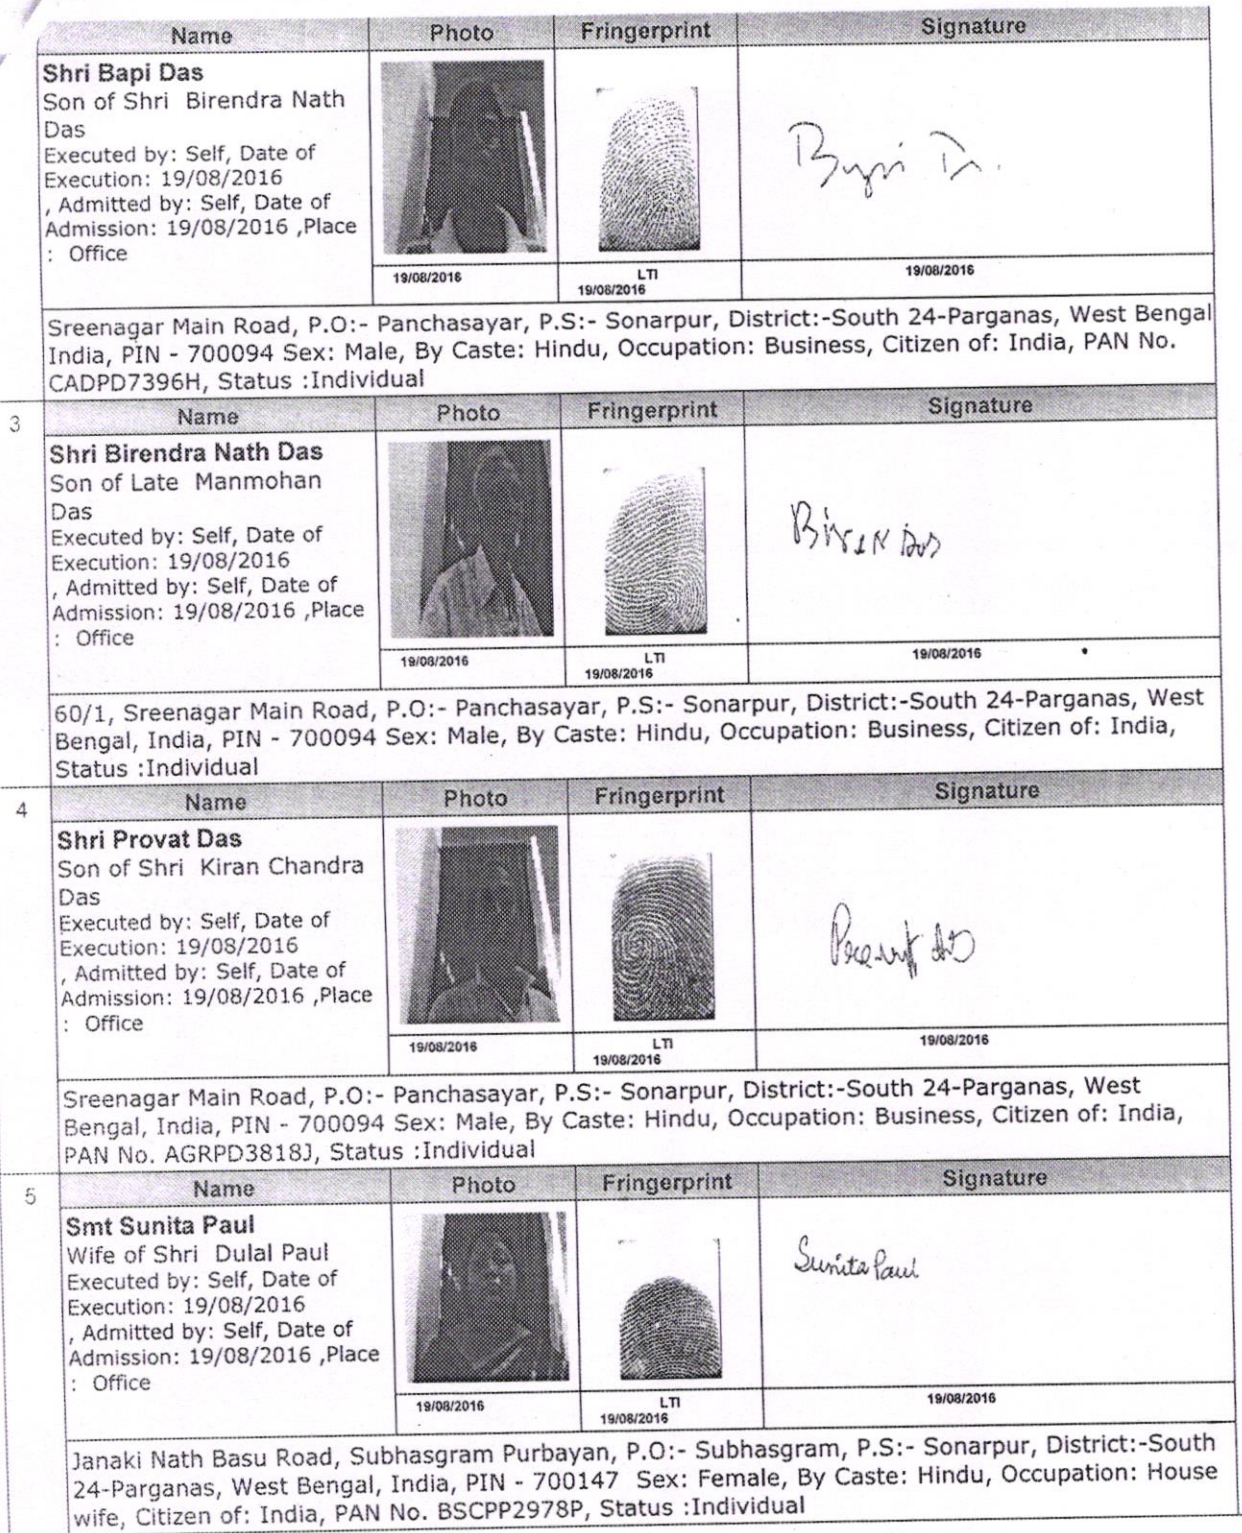 Name Photo Fringerprint Signature
Shri Bapi Das
Son of Shri Birendra Nath
Das
Executed by: Self, Date of
Execution: 19/08/2016
, Admitted by: Self, Date of
Admission: 19/08/2016 ,Place
: Office
19/08/2016 LTI 19/08/2016
19/08/2016
Sreenagar Main Road, P.O:- Panchasayar, P.S:- Sonarpur, District:-South 24-Parganas, West Bengal
India, PIN - 700094 Sex: Male, By Caste: Hindu, Occupation: Business, Citizen of: India, PAN No.
CADPD7396H, Status :Individual
3 Name Photo Fringerprint Signature
Shri Birendra Nath Das
Son of Late Manmohan
Das
Executed by: Self, Date of
Execution: 19/08/2016
, Admitted by: Self, Date of
Admission: 19/08/2016 ,Place
: Office
Biren Das
19/08/2016 LTI 19/08/2016
19/08/2016
60/1, Sreenagar Main Road, P.O:- Panchasayar, P.S:- Sonarpur, District:-South 24-Parganas, West
Bengal, India, PIN - 700094 Sex: Male, By Caste: Hindu, Occupation: Business, Citizen of: India,
Status :Individual
4 Name Photo Fringerprint Signature
Shri Provat Das
Son of Shri Kiran Chandra
Das
Executed by: Self, Date of
Execution: 19/08/2016
, Admitted by: Self, Date of
Admission: 19/08/2016 ,Place
: Office
19/08/2016 LTI 19/08/2016
19/08/2016
Sreenagar Main Road, P.O:- Panchasayar, P.S:- Sonarpur, District:-South 24-Parganas, West
Bengal, India, PIN - 700094 Sex: Male, By Caste: Hindu, Occupation: Business, Citizen of: India,
PAN No. AGRPD3818J, Status :Individual
5 Name Photo Fringerprint Signature
Smt Sunita Paul
Wife of Shri Dulal Paul
Executed by: Self, Date of
Execution: 19/08/2016
, Admitted by: Self, Date of
Admission: 19/08/2016 ,Place
: Office
Sunita Paul
19/08/2016 LTI 19/08/2016
19/08/2016
Janaki Nath Basu Road, Subhasgram Purbayan, P.O:- Subhasgram, P.S:- Sonarpur, District:-South
24-Parganas, West Bengal, India, PIN - 700147 Sex: Female, By Caste: Hindu, Occupation: House
wife, Citizen of: India, PAN No. BSCPP2978P, Status :Individual